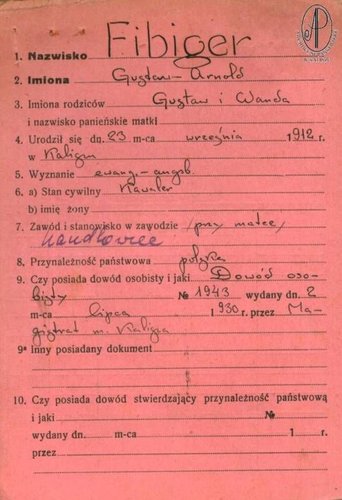 1. Nazwisko Fibiger
2. Imiona Gustaw-Arnold
3. Imiona rodziców Gustaw i Wanda
i nazwisko panieńskie matki
4. Urodził się dn. 23 m-ca września 1912 r.
w Kaliszu
5. Wyznanie ewang.-augsb.
6. a) Stan cywilny Kawaler
b) imię żony
7. Zawód i stanowisko w zawodzie /przy matce/
handlowiec
8. Przynależność państwowa polska
9. Czy posiada dowód osobisty i jaki Dowód oso-
bisty № 1943 wydany dn. 2
m-ca lipca 1930 r. przez Ma-
gistrat m. Kalisza
9a Inny posiadany dokument
10. Czy posiada dowód stwierdzający przynależność państwową
i jaki №
wydany dn. m-ca 1 r.
przez